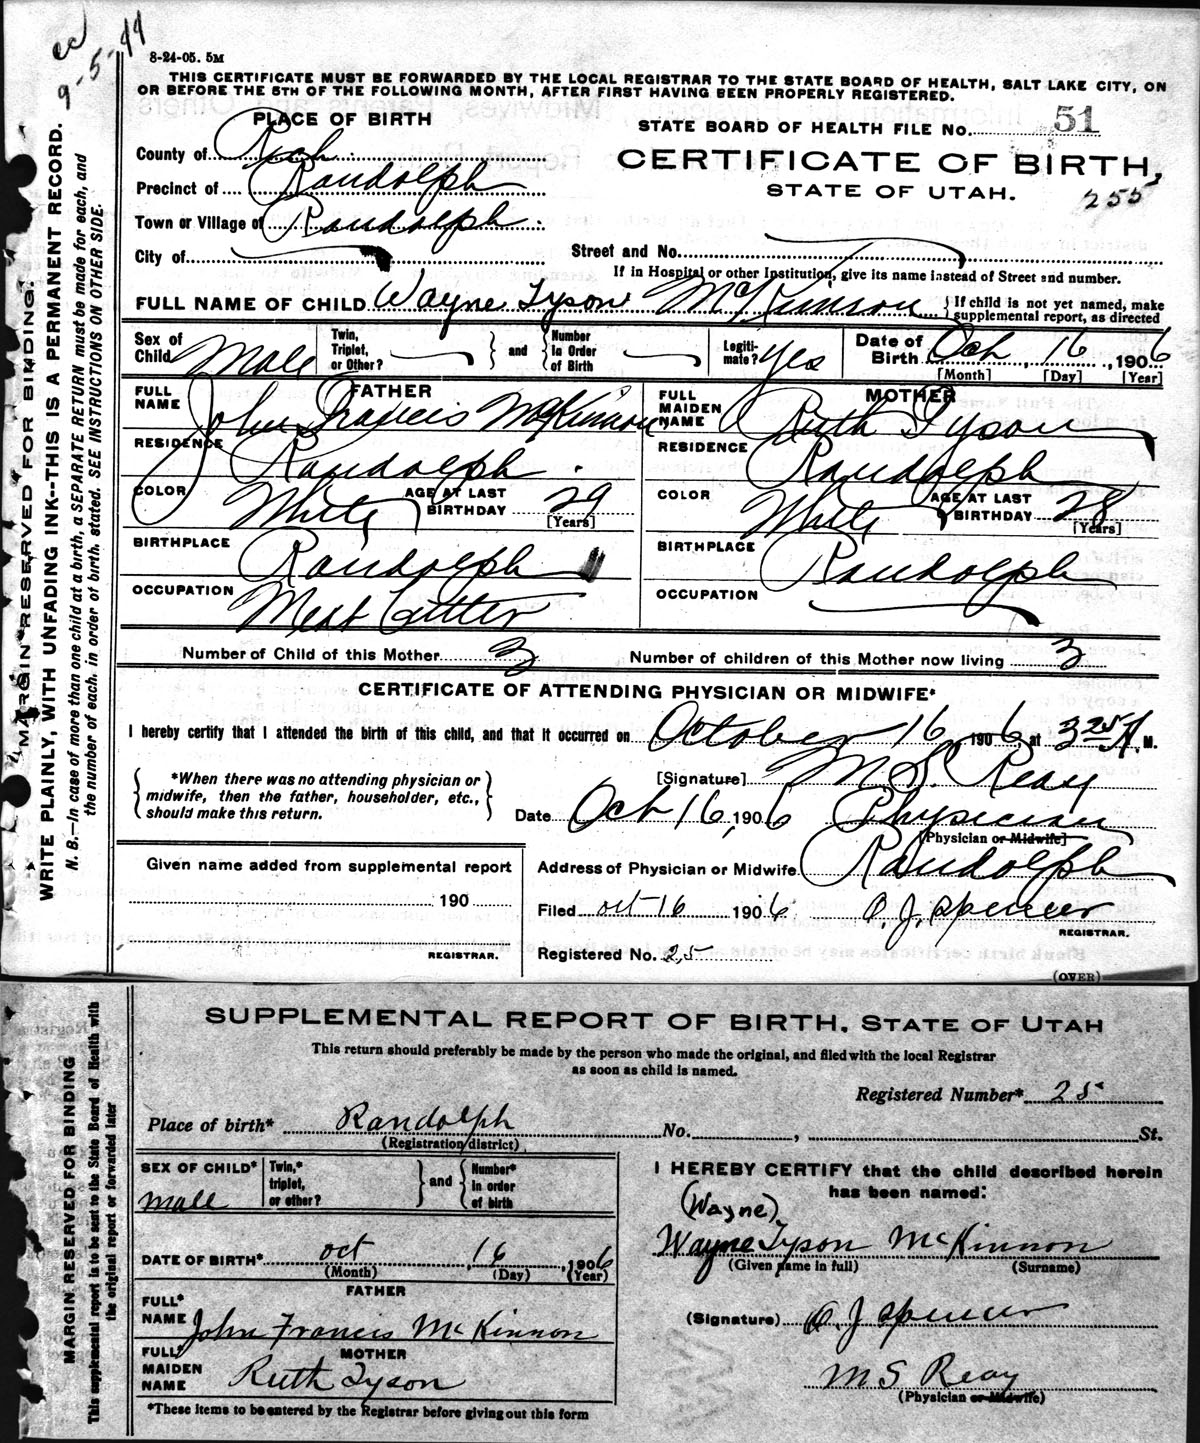 cc
9-5-44
8-24-05. 5M
THIS CERTIFICATE MUST BE FORWARDED BY THE LOCAL REGISTRAR TO THE STATE BOARD OF HEALTH, SALT LAKE CITY, ON
OR BEFORE THE 5TH OF THE FOLLOWING MONTH, AFTER FIRST HAVING BEEN PROPERLY REGISTERED.
PLACE OF BIRTH
STATE BOARD OF HEALTH FILE No. 51
County of Rich
CERTIFICATE OF BIRTH,
Precinct of Randolph
STATE OF UTAH.
255
Town or Village of Randolph
City of
Street and No.
If in Hospital or other Institution, give its name instead of Street and number.
FULL NAME OF CHILD Wayne Tyson McKinnon } If child is not yet named, make
supplemental report, as directed
Sex of Child Male
Twin, Triplet, or Other? } and { Number In Order of Birth
Legiti-mate? Yes
Date of Birth Oct 16, 1906
[Month] [Day] [Year]
FATHER
FULL NAME John Francis McKinnon
RESIDENCE Randolph
COLOR White AGE AT LAST BIRTHDAY 29
[Years]
BIRTHPLACE Randolph
OCCUPATION Meat Cutter
MOTHER
FULL MAIDEN NAME Ruth Tyson
RESIDENCE Randolph
COLOR White AGE AT LAST BIRTHDAY 28
[Years]
BIRTHPLACE Randolph
OCCUPATION
Number of Child of this Mother 3 Number of children of this Mother now living 3
CERTIFICATE OF ATTENDING PHYSICIAN OR MIDWIFE*
I hereby certify that I attended the birth of this child, and that it occurred on October 16, 1906, at 3 25 A. M.
{ *When there was no attending physician or
midwife, then the father, householder, etc.,
should make this return. }
[Signature] M. S. Reay
Date Oct 16, 1906 Physician
[Physician or Midwife]
Given name added from supplemental report
190
REGISTRAR.
Address of Physician or Midwife Randolph
Filed oct 16 1906 O. J. Spencer
REGISTRAR.
Registered No. 25
(OVER)
MARGIN RESERVED FOR BINDING.
WRITE PLAINLY, WITH UNFADING INK--THIS IS A PERMANENT RECORD.
N. B.—In case of more than one child at a birth, a SEPARATE RETURN must be made for each, and
the number of each, in order of birth, stated. SEE INSTRUCTIONS ON OTHER SIDE.
SUPPLEMENTAL REPORT OF BIRTH, STATE OF UTAH
This return should preferably be made by the person who made the original, and filed with the local Registrar
as soon as child is named.
Registered Number* 25
Place of birth* Randolph No. , St.
(Registration district)
SEX OF CHILD* male
Twin,* triplet, or other? } and { Number* in order of birth
DATE OF BIRTH* oct 16, 1906
(Month) (Day) (Year)
FATHER
FULL* NAME John Francis McKinnon
MOTHER
FULL* MAIDEN NAME Ruth Tyson
*These items to be entered by the Registrar before giving out this form
I HEREBY CERTIFY that the child described herein
has been named:
(Wayne)
Wayne Tyson McKinnon
(Given name in full) (Surname)
(Signature) O. J Spencer
M S Reay
(Physician or Midwife)
MARGIN RESERVED FOR BINDING
This supplemental report is to be sent to the State Board of Health with
the original report or forwarded later